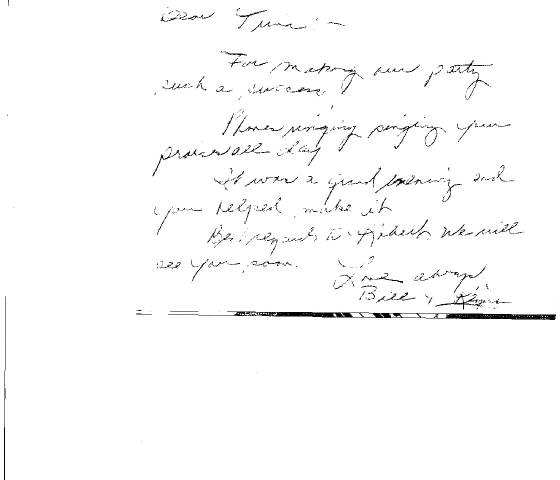 Dear Trina:-
For making our party
such a success
Phones ringing singing your
praises all day
It was a grand evening and
you helped make it
Best regards to we will
see you soon.
Love always
Bill &